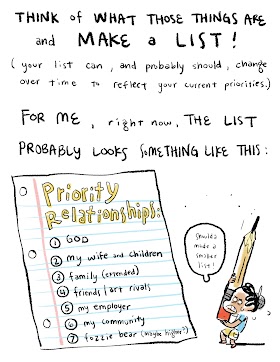 THINK of WHAT THOSE THINGS ARE
and MAKE a LIST!
(your list can, and probably should, change
over time to reflect your current priorities.)
FOR ME, right now, THE LIST
PROBABLY LOOKS SOMETHING LIKE THIS:
Priority
Relationships:
1 GOD
2 my wife and children
3 family (extended)
4 friends/art rivals
5 my employer
6 my community
7 fozzie bear (maybe higher?)
should've
made a
smaller
list!